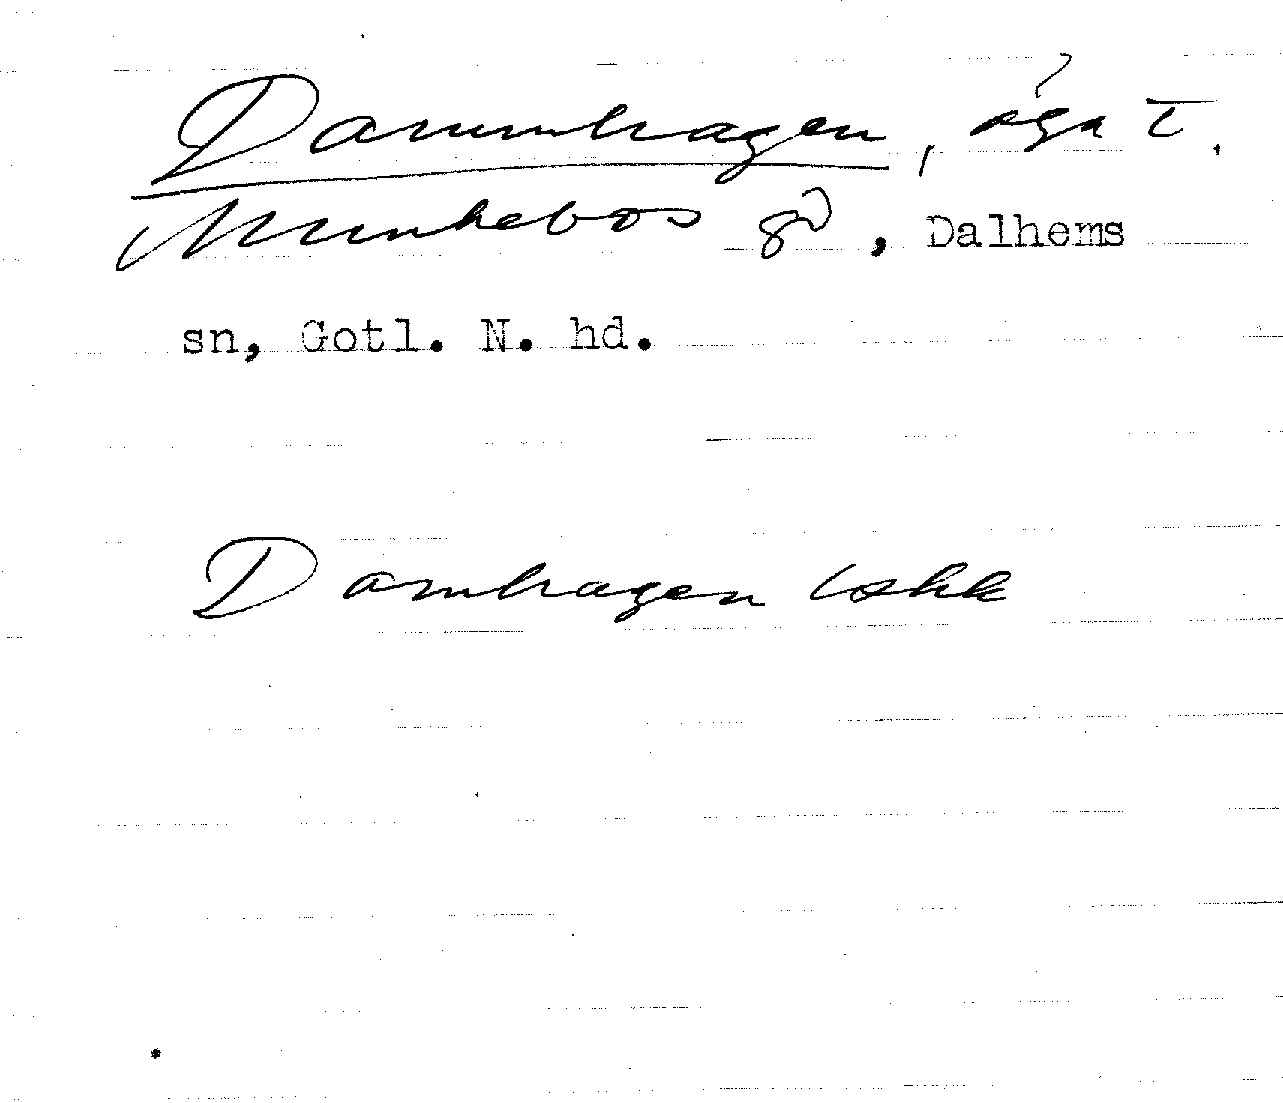 Dammhagen, äga t.
Munkebos gd, Dalhems
sn, Gotl. N. hd.
Damhagen Lskk